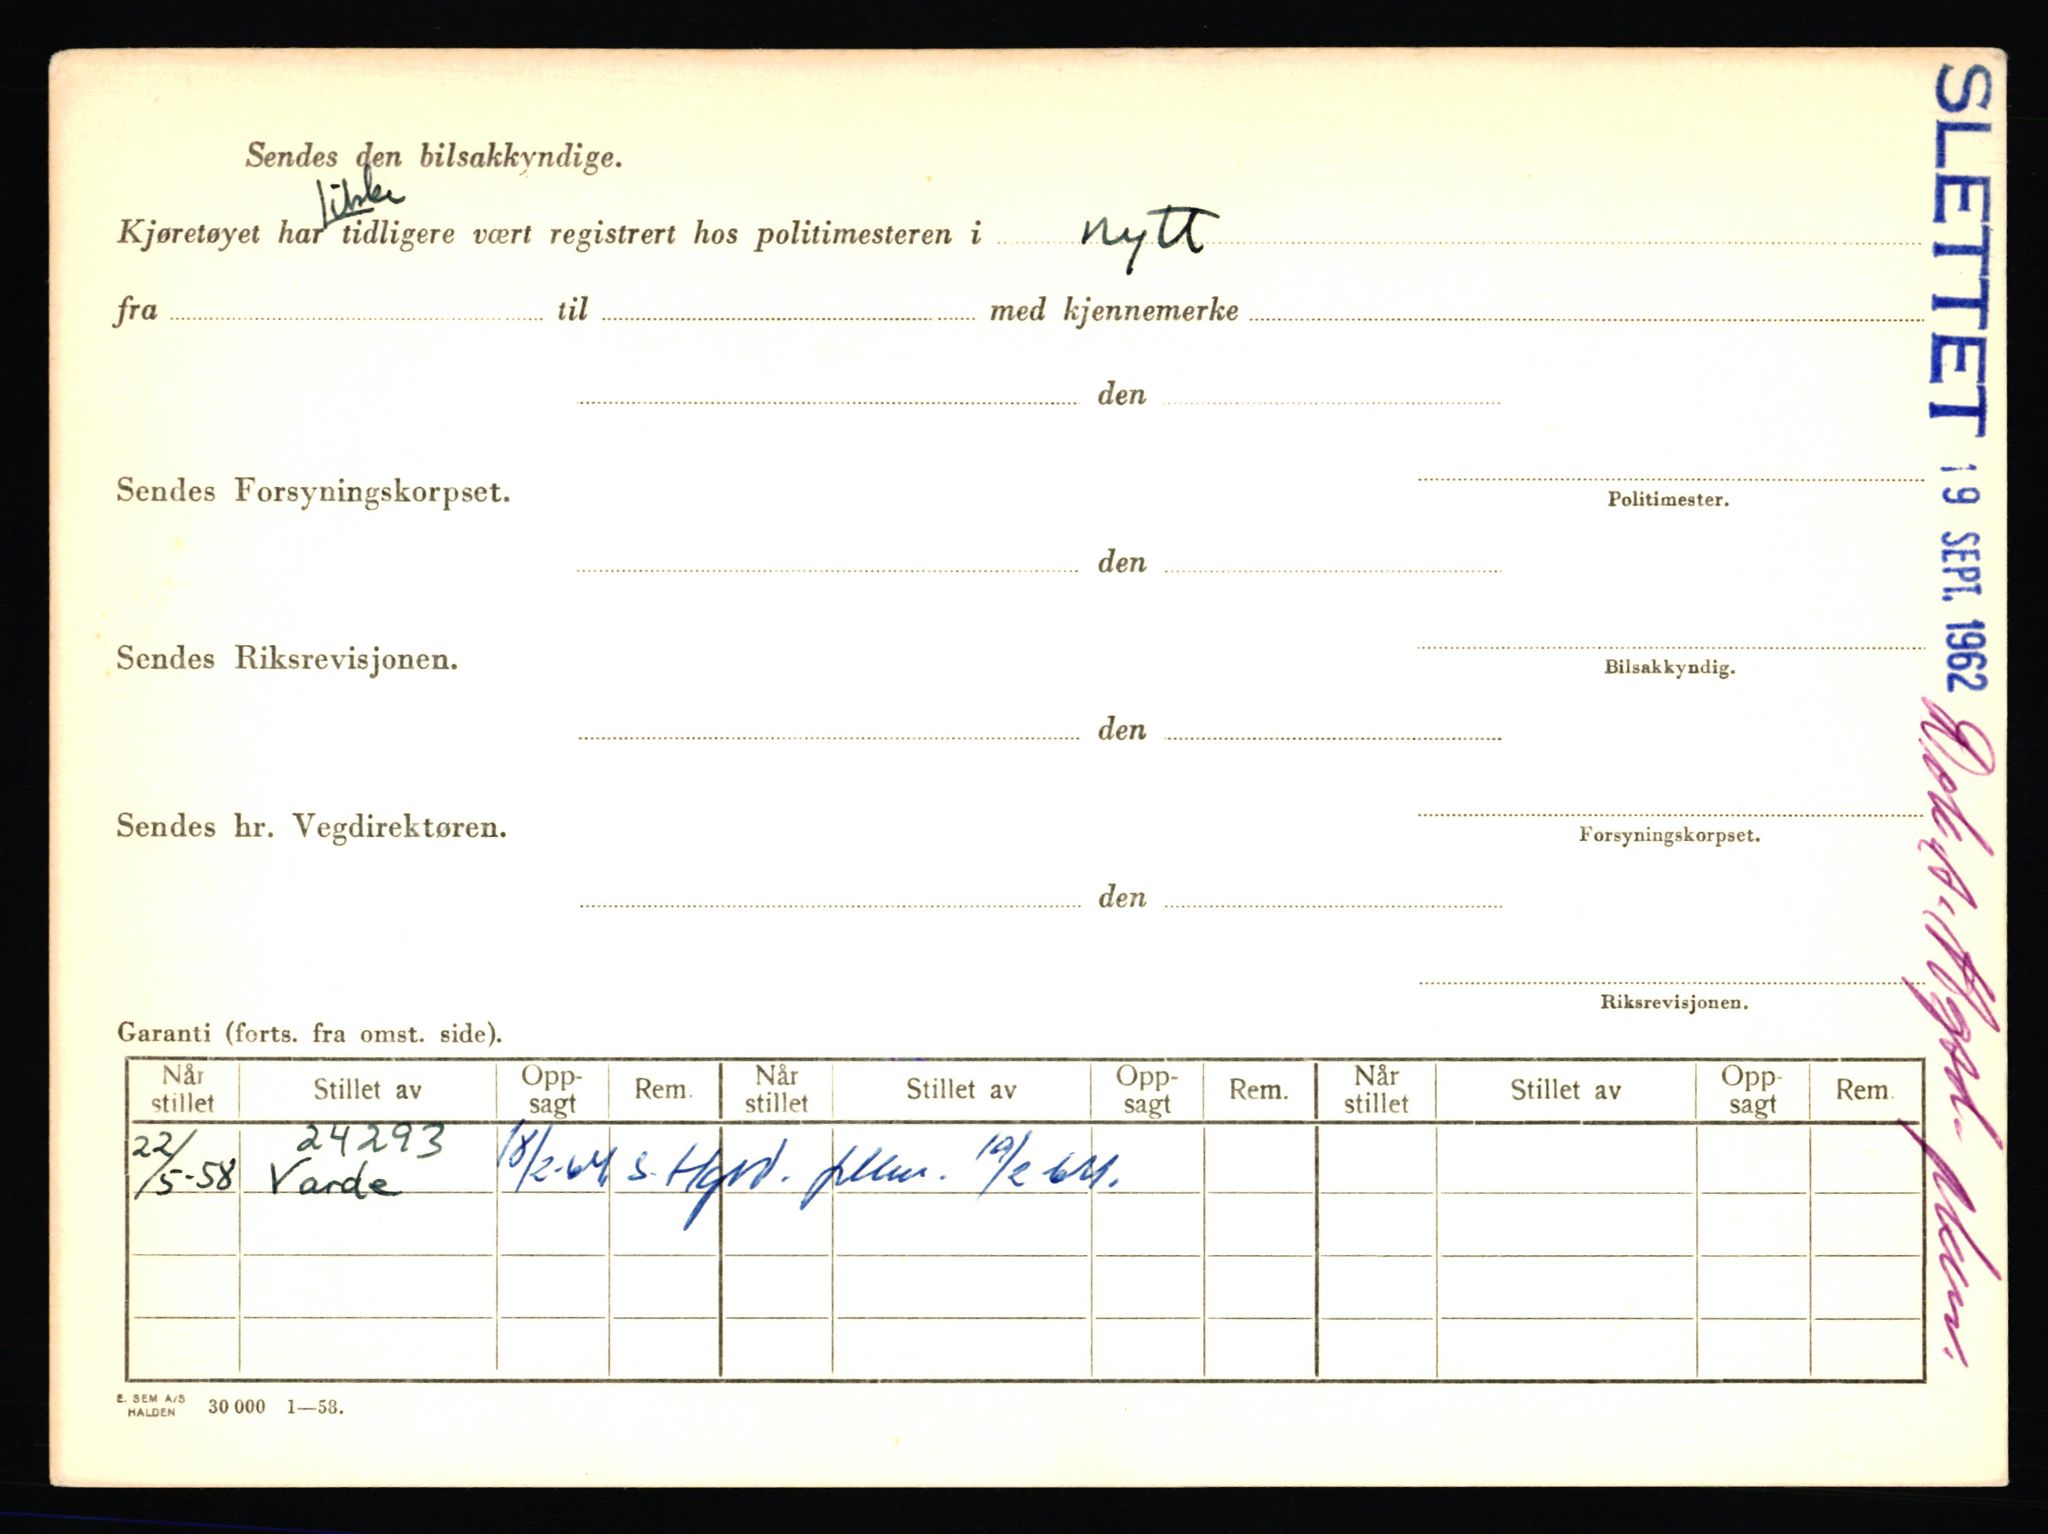 Sendes den bilsakkyndige.
ikke
Kjøretøyet har tidligere vært registrert hos politimesteren i nytt
fra til med kjennemerke
den
Sendes Forsyningskorpset.
Politimester.
den
Sendes Riksrevisjonen.
Bilsakkyndig.
den
Sendes hr. Vegdirektøren.
Forsyningskorpset.
den
Riksrevisjonen.
Garanti (forts. fra omst. side).
Når stillet Stillet av Opp-sagt Rem. Når stillet Stillet av Opp-sagt Rem. Når stillet Stillet av Opp-sagt Rem.
22/5-58 24293 Varde 18/2-64 19/2 64.
E. SEM A/S
HALDEN 30 000 1—58.
SLETTET 19 SEPT. 1962